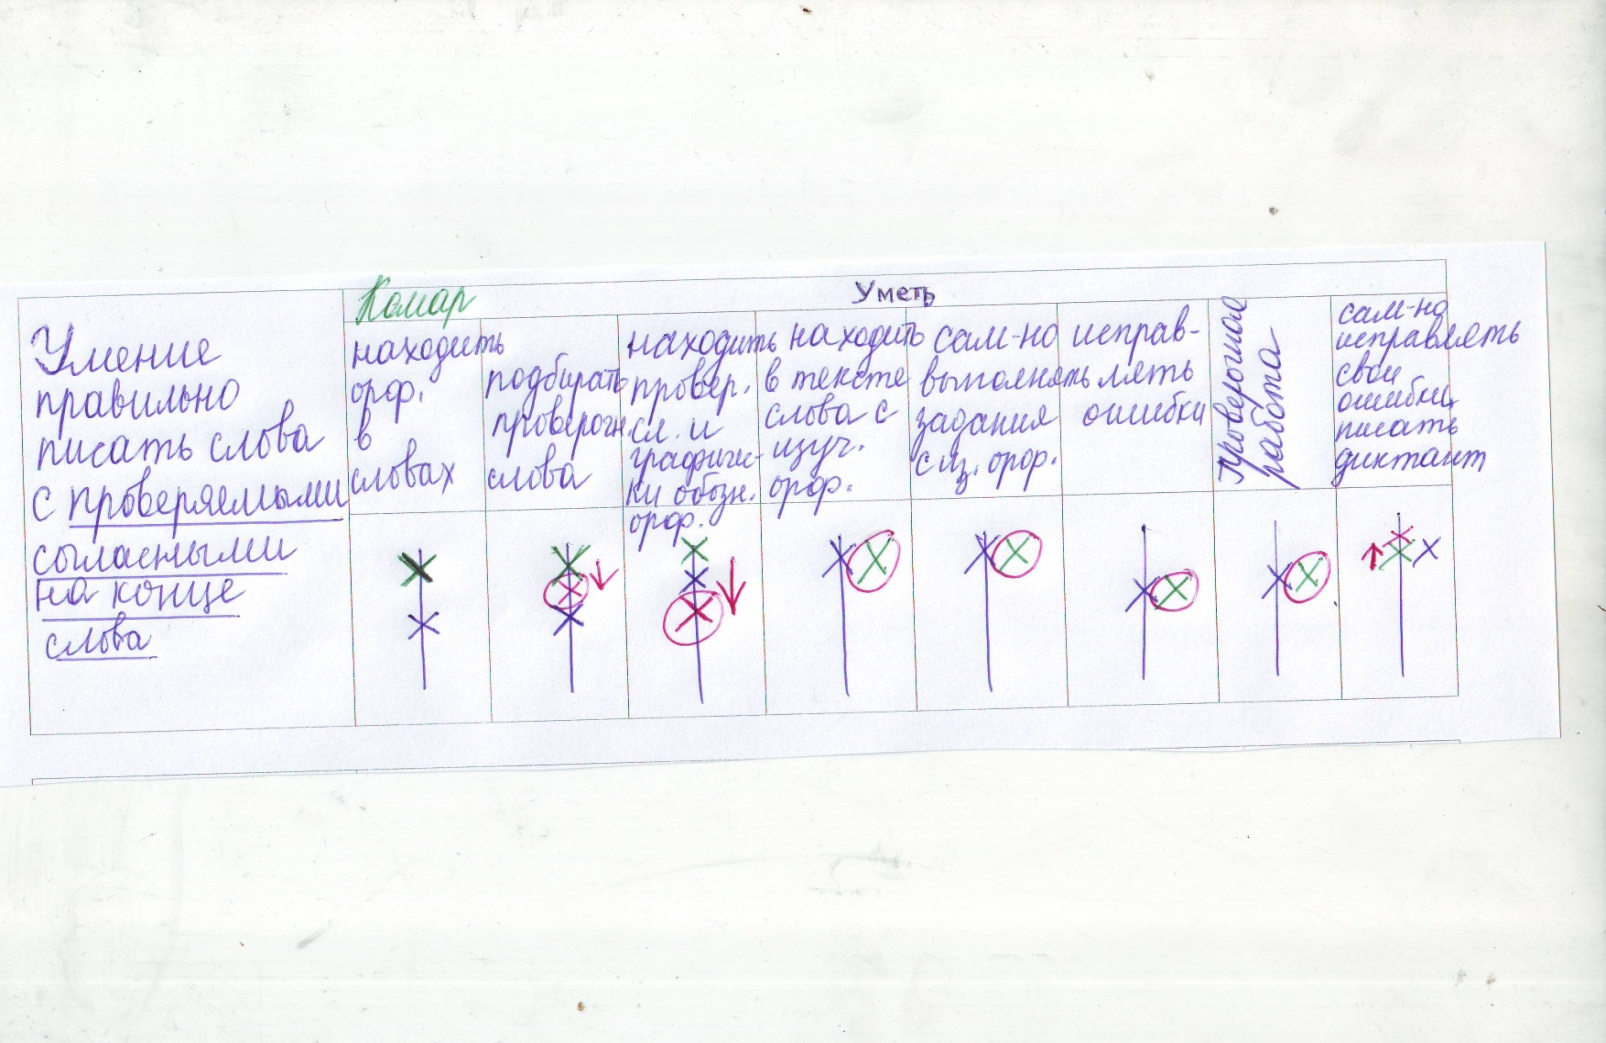 Комар
Уметь
Умение
правильно
писать слова
с проверяемыми
согласными
на конце
слова
находить
орф.
в
словах
подбирать
провероч.
слова
находить
провер.
сл. и
графиче-
ки обозн.
орф.
находить
в тексте
слова с
изуч.
орф.
сам-но
выполнять
задания
с из. орф.
исправ-
лять
ошибки
Проверочная
работа
сам-но
исправлять
свои
ошибки,
писать
диктант